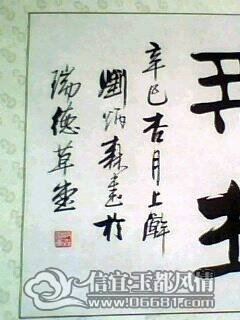 辛巳杏月上澣
刘炳森書於
瑞德草堂
信宜玉都风情
www.06681.com